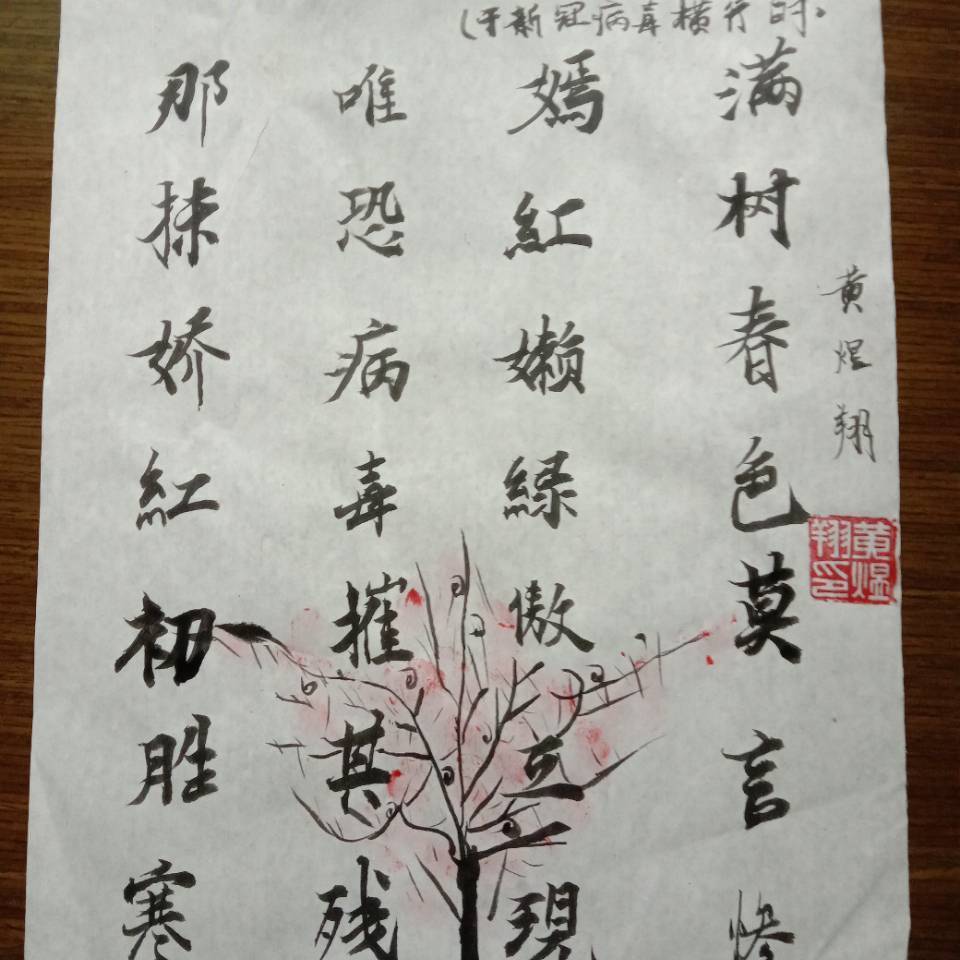 (于新冠病毒横行时。
黄煜翔
黄煜翔印
满树春色莫言惨
嫣紅嬾緑傲互现
唯恐病毒摧其残
那抹娇紅初胜寒